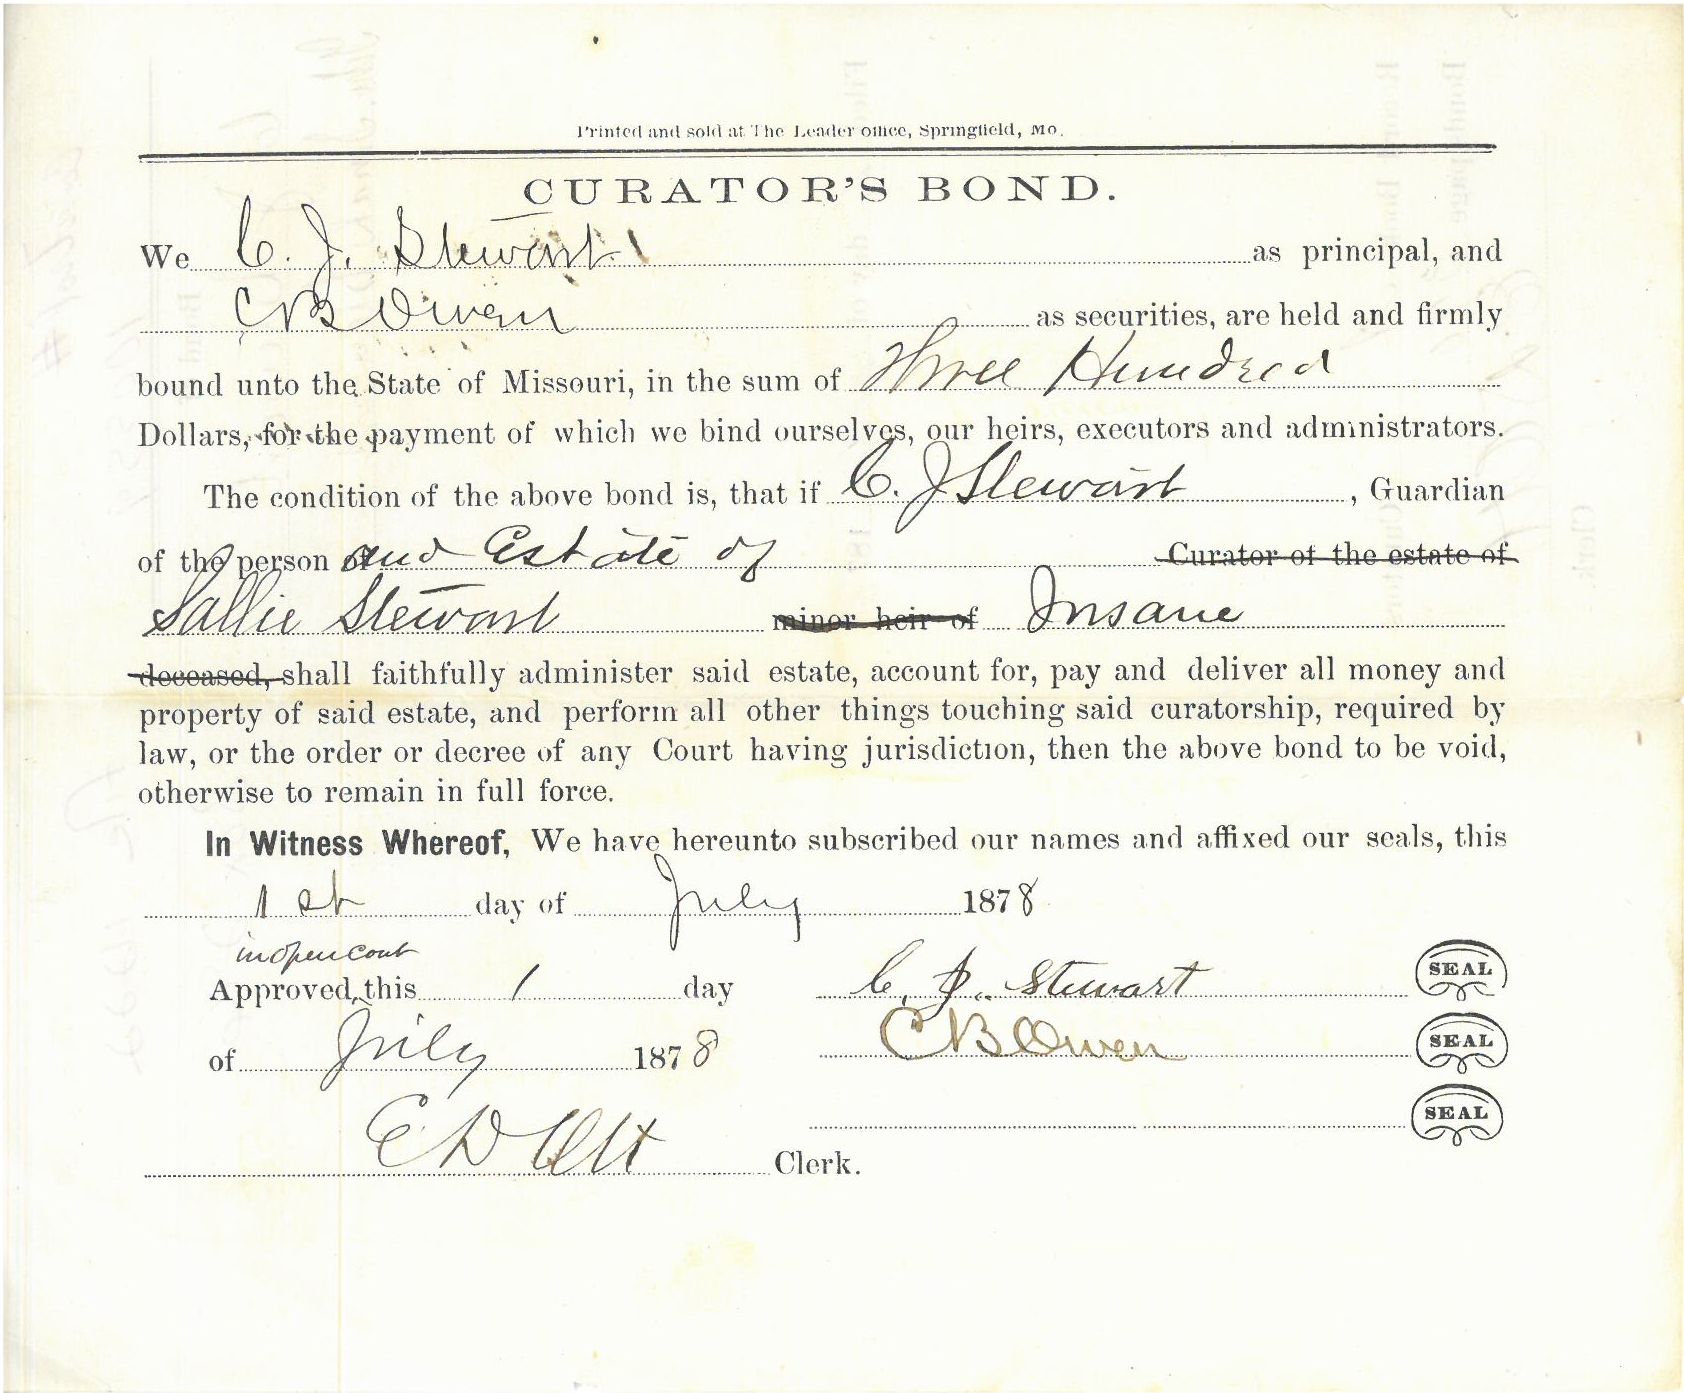 Printed and sold at The Leader office, Springfield, Mo.
CURATOR'S BOND.
We C. J. Stewart as principal, and
C B Owen as securities, are held and firmly
bound unto the State of Missouri, in the sum of Three Hundred
Dollars, for the payment of which we bind ourselves, our heirs, executors and administrators.
The condition of the above bond is, that if C. J Stewart, Guardian
of the person and Estate of Curator of the estate of
Sallie Stewart minor heir of Insane
deceased, shall faithfully administer said estate, account for, pay and deliver all money and
property of said estate, and perform all other things touching said curatorship, required by
law, or the order or decree of any Court having jurisdiction, then the above bond to be void,
otherwise to remain in full force.
In Witness Whereof, We have hereunto subscribed our names and affixed our seals, this
1st day of July 1878
in open court
Approved, this 1 day C. J. Stewart SEAL
of July 1878 C B Owen SEAL
SEAL
E D Ott Clerk.